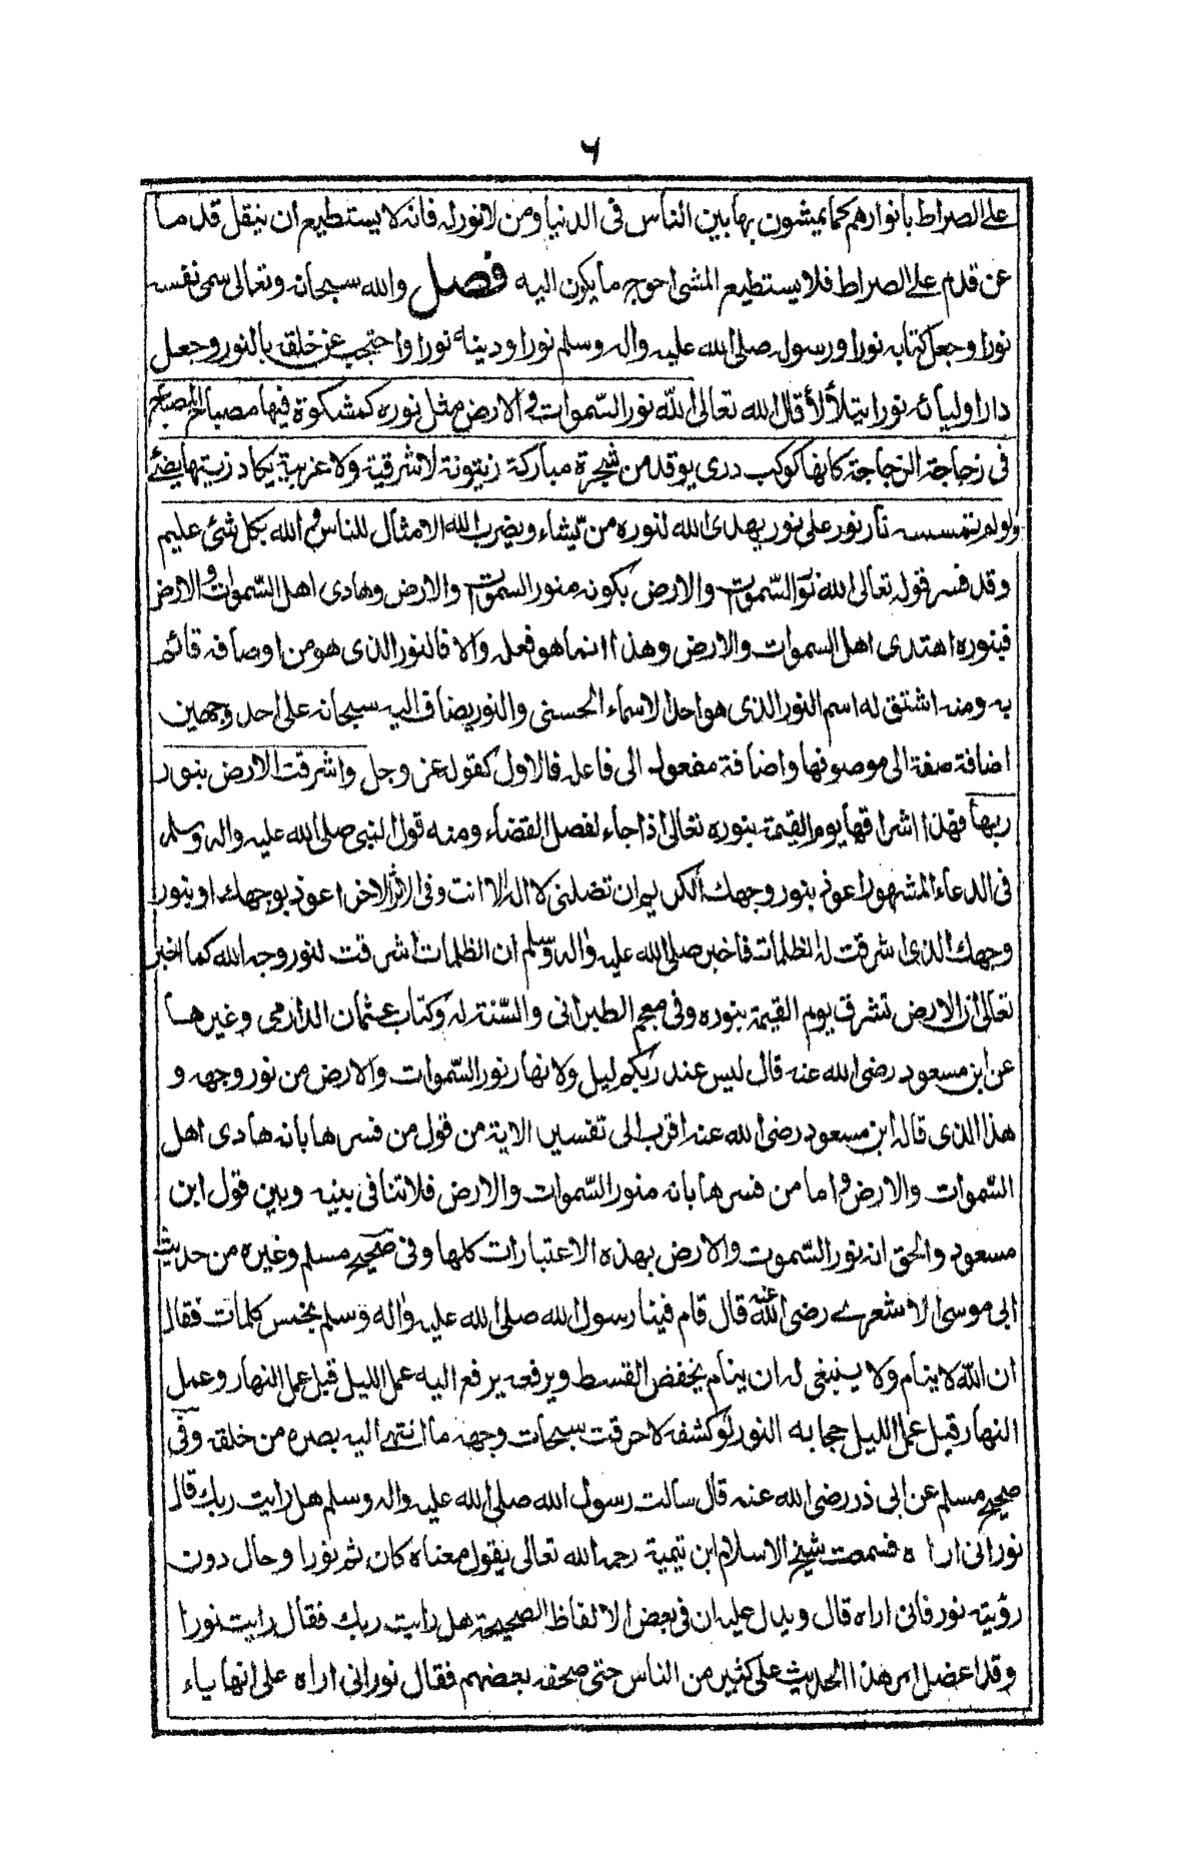 ۶
على الصراط بانوارهم كما يمشون بها بين الناس فى الدنيا ومن لا نور له فانه لا يستطيع ان ينقل قدما
عن قدم على الصراط فلا يستطيع المشى احوج ما يكون اليه فصل والله سبحانه وتعالى سمى نفسه
نورا وجعل كتابه نورا ورسوله صلى الله عليه واله وسلم نورا ودينه نورا واحتجب عن خلقه بالنور وجعل
دار اوليائه نورا يتلألأ قال الله تعالى الله نور السّموات و الارض مثل نوره كمشكوة فيها مصباح المصباح
فى زجاجة الزجاجة كانها كوكب درى يوقد من شجرة مباركة زيتونة لا شرقية ولا غربية يكاد زيتها يضئ
ولو لم تمسسه نار نور على نور يهدى الله لنوره من يشاء ويضرب الله الامثال للناس و الله بكل شئ عليم
وقد فسر قوله تعالى الله نور السّموت والارض بكونه منور السموت والارض وهادى اهل السّموات و الارض
فبنوره اهتدى اهل السموات والارض وهذا انما هو فعله والا فالنور الذى هو من اوصافه قائم
به ومنه اشتق له اسم النور الذى هو احد الاسماء الحسنى والنور يضاف اليه سبحانه على احد وجهين
اضافة صفة الى موصوفها واضافة مفعول الى فاعله فالاول كقوله عز وجل واشرقت الارض بنور
ربها فهذا اشراقها يوم القيمة بنوره تعالى اذا جاء لفصل القضاء ومنه قول النبى صلى الله عليه واله وسلم
فى الدعاء المشهور اعوذ بنور وجهك الكريم ان تضلنى لا اله الا انت وفى الاثر الاخر اعوذ بوجهك او بنور
وجهك الذى اشرقت له الظلمات فاخبر صلى الله عليه واله وسلم ان الظلمات اشرقت لنور وجه الله كما اخبر
تعالى ان الارض تشرق يوم القيمة بنوره وفى معجم الطبرانى والسّنة له وكتاب عثمان الدارمى وغيرها
عن ابن مسعود رضى الله عنه قال ليس عند ربكم ليل ولا نهار نور السّموات والارض من نور وجهه و
هذا الذى قاله ابن مسعود رضى الله عنه اقرب الى تفسير الاية من قول من فسرها بانه هادى اهل
السّموات والارض و اما من فسرها بانه منور السّموات والارض فلا تنافى بينه وبين قول ابن
مسعود والحق انه نور السّموت والارض بهذه الاعتبارات كلها وفى صحيح مسلم وغيره من حديث
ابى موسى الاشعرے رضى الله عنه قال قام فينا رسول الله صلى الله عليه واله وسلم بخمس كلمات فقال
ان الله لا ينام ولا ينبغى له ان ينام يخفض القسط ويرفعه يرفع اليه عمل الليل قبل عمل النهار وعمل
النهار قبل عمل الليل حجابه النور لو كشفه لاحرقت سبحات وجهه ما انتهى اليه بصره من خلقه وفى
صحيح مسلم عن ابى ذر رضى الله عنه قال سالت رسول الله صلى الله عليه واله وسلم هل رايت ربك قال
نور انى اراه فسمعت شيخ الاسلام ابن تيمية رحمه الله تعالى يقول معناه كان ثم نورا وحال دون
رؤيته نور فانى اراه قال ويدل عليه ان فى بعض الالفاظ الصحيحة هل رايت ربك فقال رايت نورا
وقد اعضل امر هذا الحديث على كثير من الناس حتى صحفه بعضهم فقال نورانى اراه على انها ياء